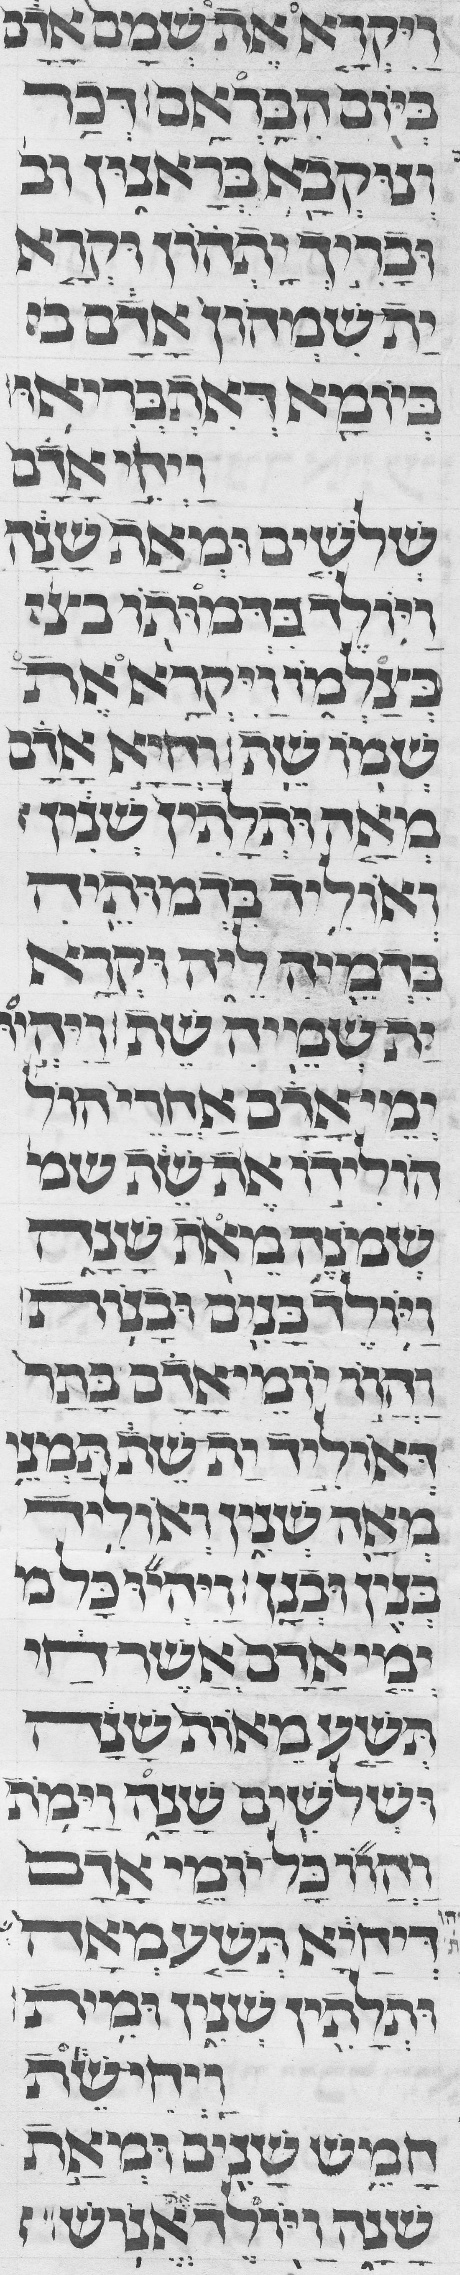 ויקרא את שמם אדם
ביום הבראם ׃ דכר
ונוקבא בראנון וב
ובריך יתהון וקרא
ית שמהון אדם בי
ביומא דאתבריאו
ויחי אדם
שלשים ומאת שנה
ויולד בדמותו בצ
כצלמו ויקרא את
שמו שת ׃ וחיא אדם
מאה ותלתין שנין
ואוליד בדמותיה
בדמיה ליה וקרא
ית שמיה שת ׃ ויהיו
ימי אדם אחרי הול
הולידו את שת שמ
שמנה מאת שנה
ויולד בנים ובנות
והוו יומי אדם בתר
דאוליד ית שת תמני
מאה שנין ואוליד
בנין ובנן ׃ ויהיו כל מ
ימי אדם אשר חי
תשע מאות שנה
ושלשים שנה וימת
והוו כל יומי אדם
דיחיא תשע מאה
ותלתין שנין ומית
ויחי שת
חמש שנים ומאת
שנה ויולד אנוש ׃